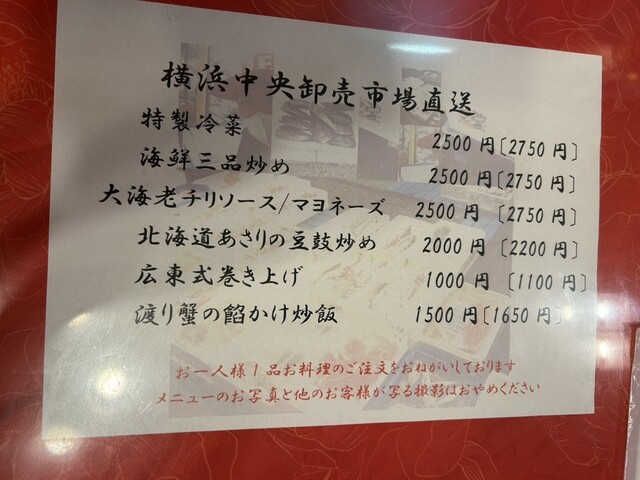 横浜中央卸売市場直送
特製冷菜 2500 円〔2750 円〕
海鮮三品炒め 2500 円〔2750 円〕
大海老チリソース/マヨネーズ 2500 円〔2750 円〕
北海道あさりの豆鼓炒め 2000 円〔2200 円〕
広東式巻き上げ 1000 円〔1100 円〕
渡り蟹の餡かけ炒飯 1500 円〔1650 円〕
お一人様1品お料理のご注文をおねがいしております
メニューのお写真と他のお客様が写る撮影はおやめください